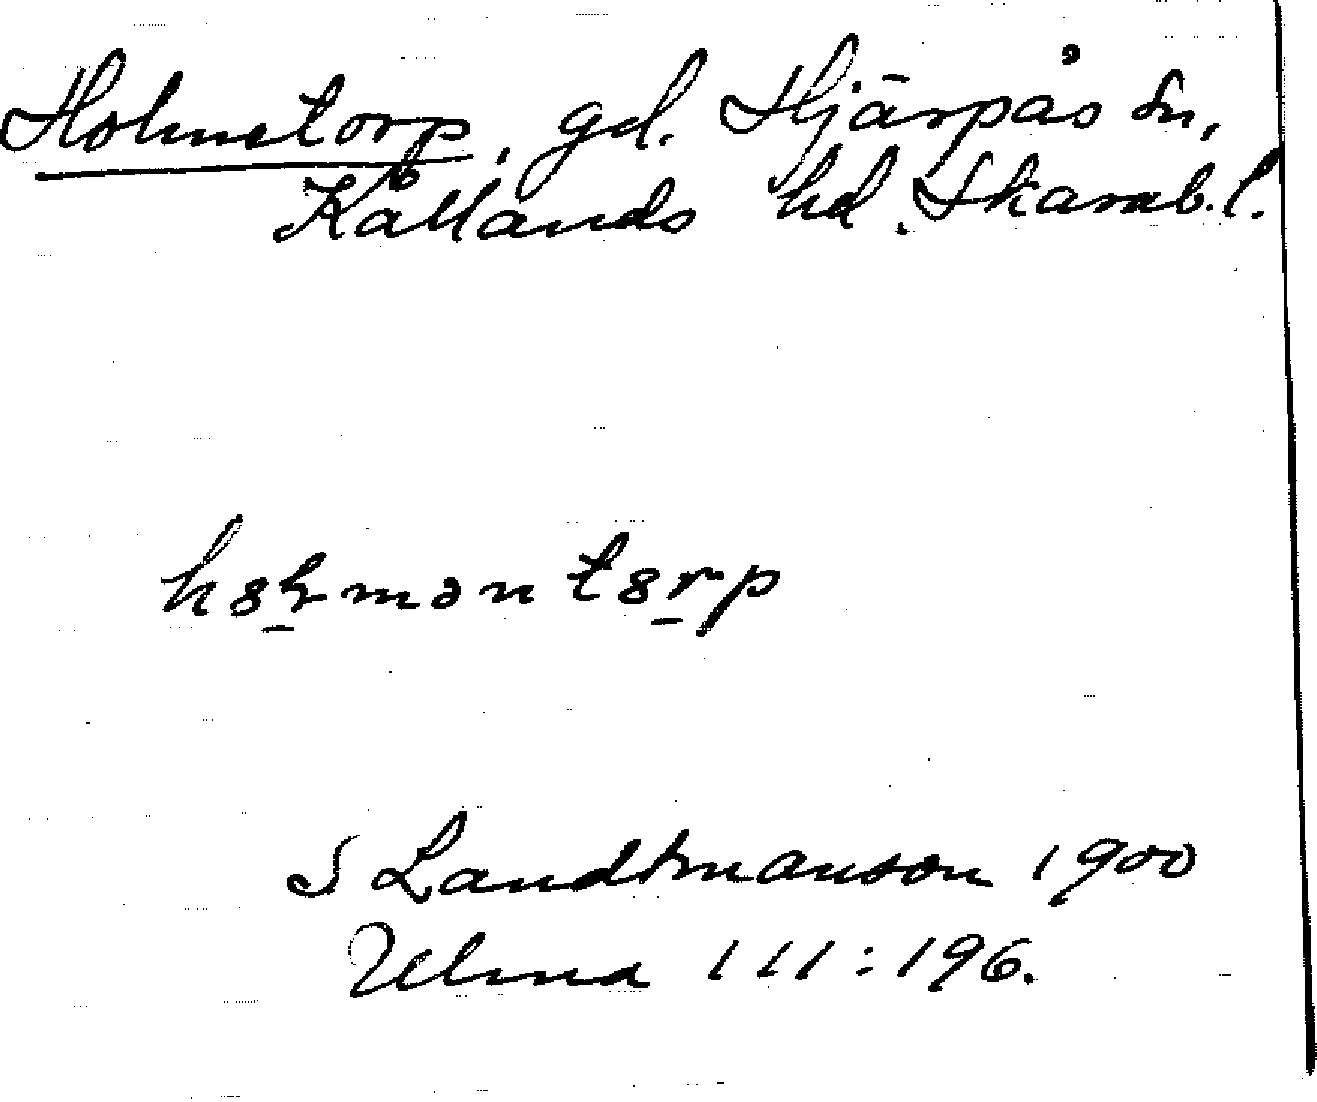 Holmetorp, gd. Hjärpås sn,
Kållands hd. Skarab.l.
hɞɫmən tɞrp
S Landtmanson 1900
Ulma 111:196.